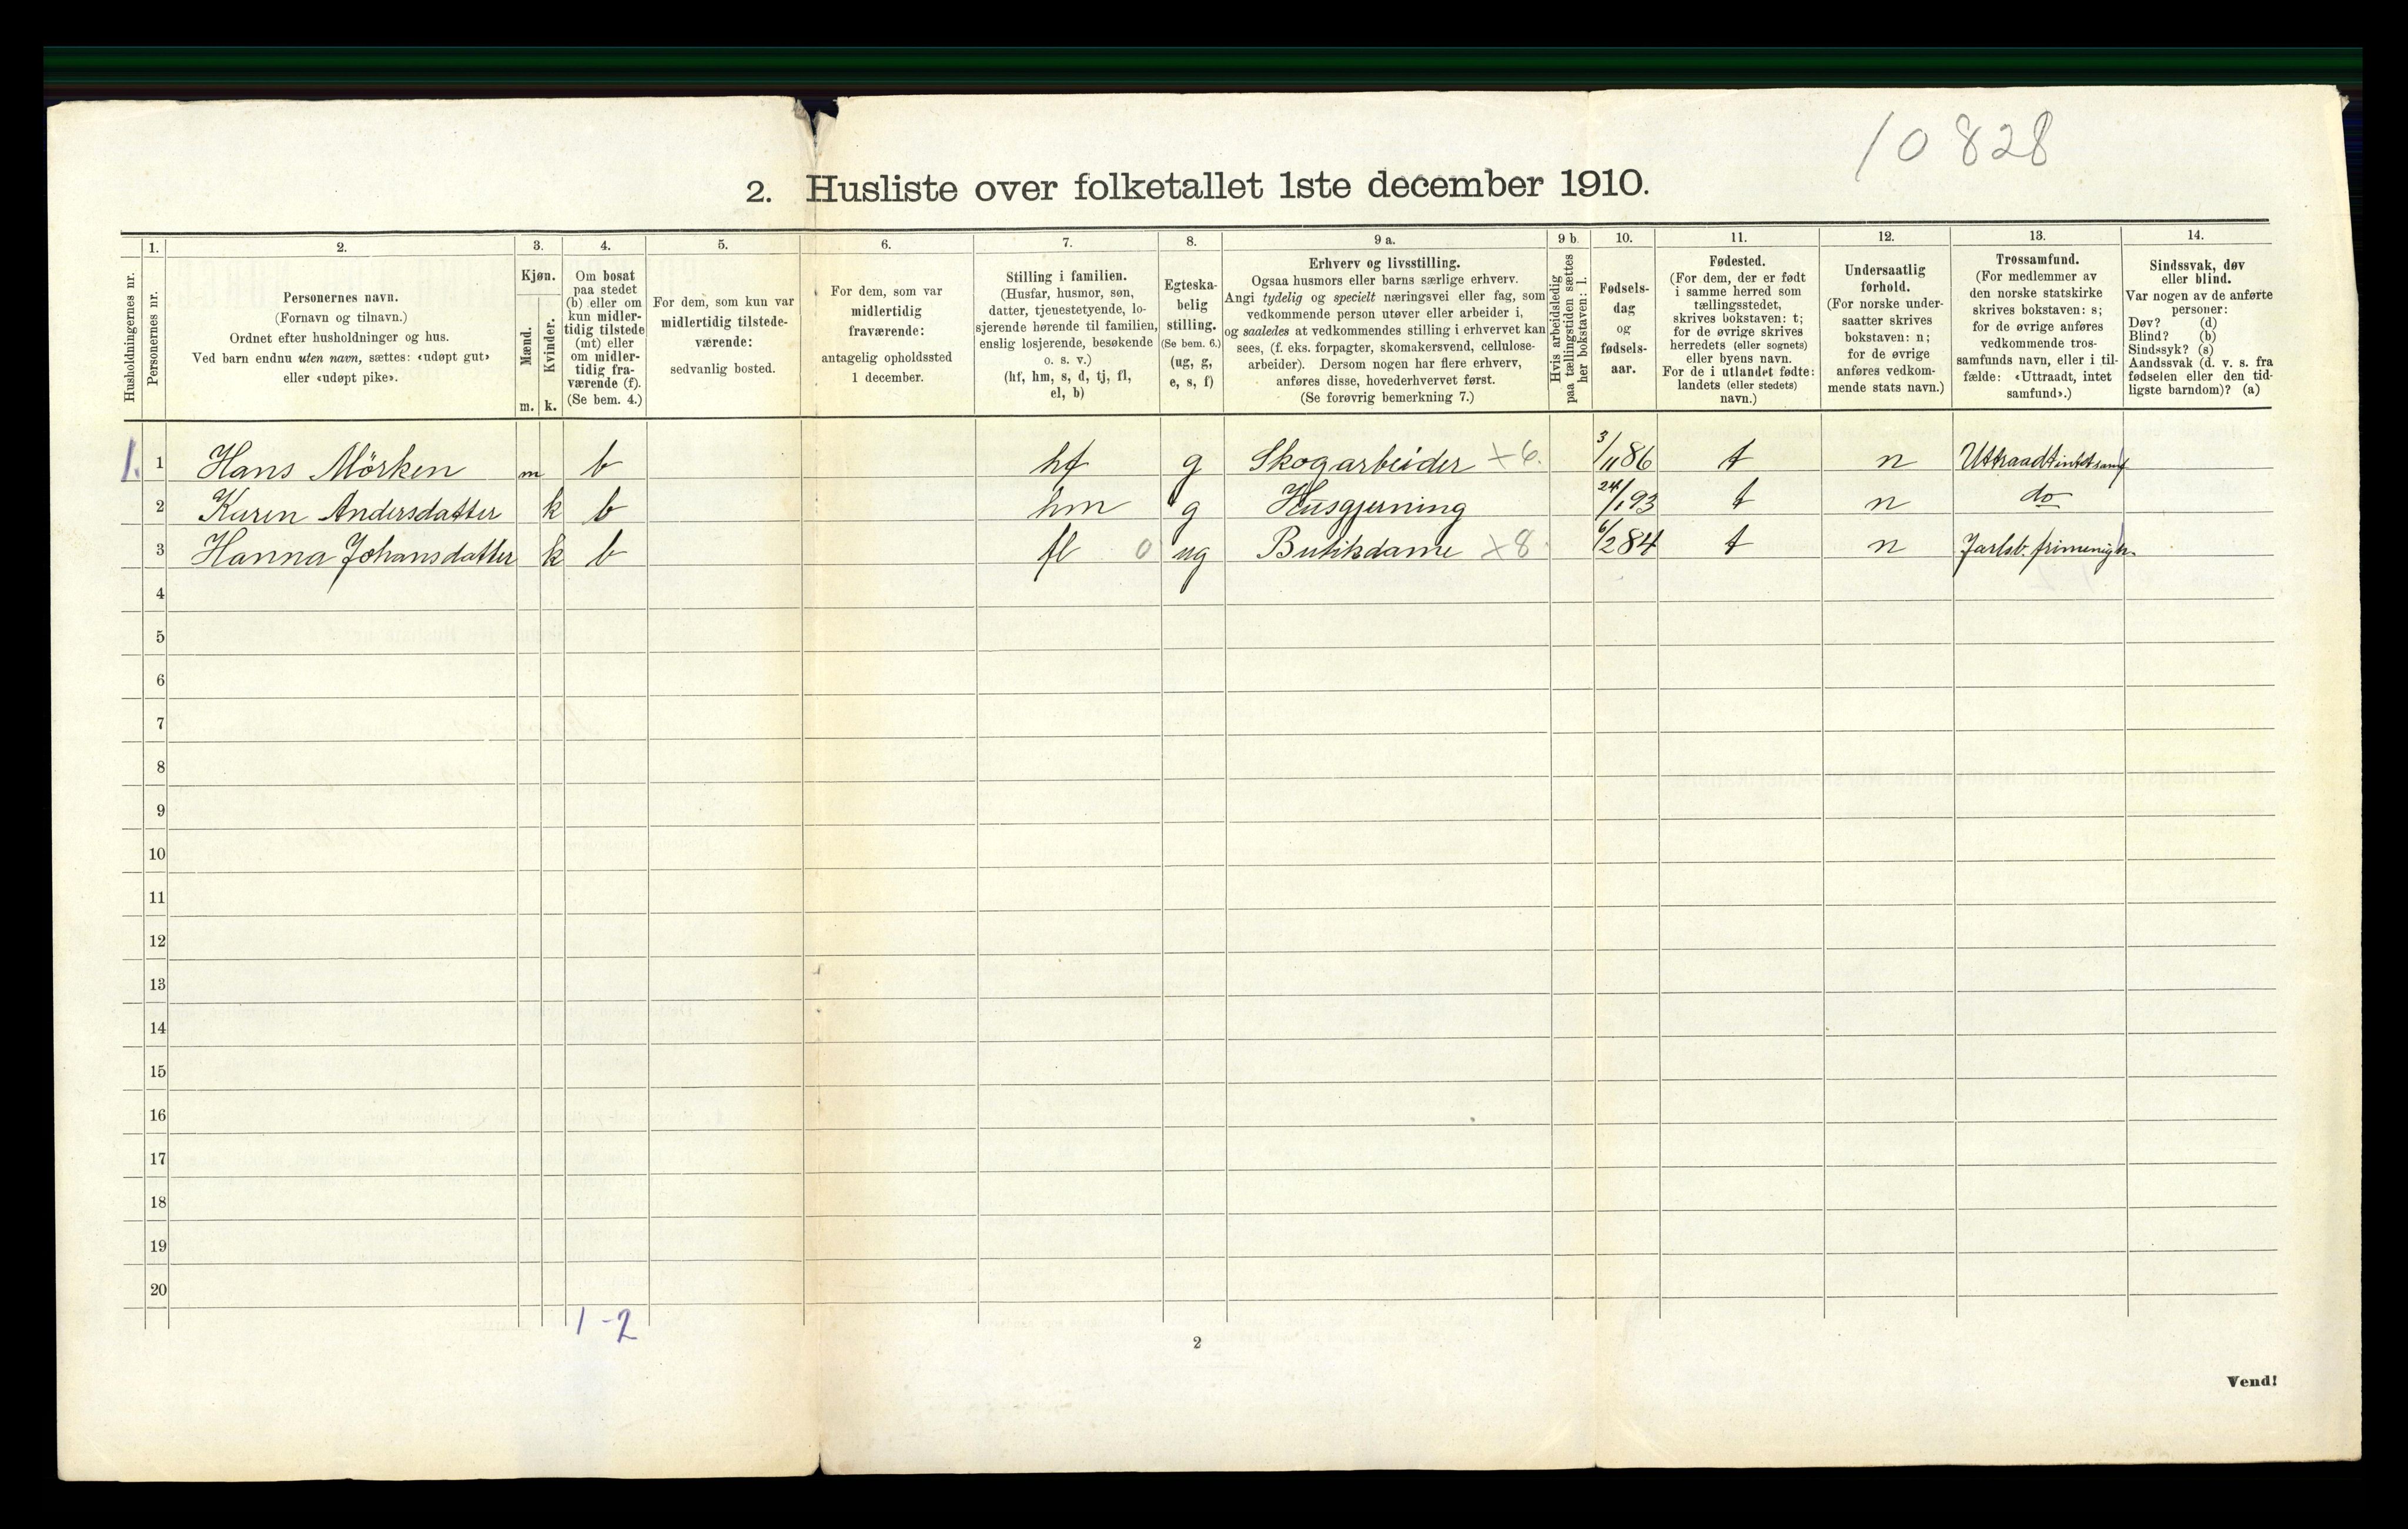 10828
2. Husliste over folketallet 1ste december 1910.
Husholdningernes nr.
1.
Personernes nr.
2.
Personernes navn.
(Fornavn og tilnavn.)
Ordnet efter husholdninger og hus.
Ved barn endnu uten navn, sættes: «udøpt gut»
eller «udøpt pike».
3.
Kjøn.
Mænd.
Kvinder.
m. k.
4.
Om bosat
paa stedet
(b) eller om
kun midler-
tidig tilstede
(mt) eller
om midler-
tidig fra-
værende (f).
(Se bem. 4.)
5.
For dem, som kun var
midlertidig tilstede-
værende:
sedvanlig bosted.
6.
For dem, som var
midlertidig
fraværende:
antagelig opholdssted
1 december.
7.
Stilling i familien.
(Husfar, husmor, søn,
datter, tjenestetyende, lo-
sjerende hørende til familien,
enslig losjerende, besøkende
o. s. v.)
(hf, hm, s, d, tj, fl,
el, b)
8.
Egteska-
belig
stilling.
(Se bem. 6.)
(ug, g,
e, s, f)
9 a.
Erhverv og livsstilling.
Ogsaa husmors eller barns særlige erhverv.
Angi tydelig og specielt næringsvei eller fag, som
vedkommende person utøver eller arbeider i,
og saaledes at vedkommendes stilling i erhvervet kan
sees, (f. eks. forpagter, skomakersvend, cellulose-
arbeider). Dersom nogen har flere erhverv,
anføres disse, hovederhvervet først.
(Se forøvrig bemerkning 7.)
9 b.
Hvis arbeidsledig
paa tællingstiden sættes
her bokstaven: l.
10.
Fødsels-
dag
og
fødsels-
aar.
11.
Fødested.
(For dem, der er født
i samme herred som
tællingsstedet,
skrives bokstaven: t;
for de øvrige skrives
herredets (eller sognets)
eller byens navn.
For de i utlandet fødte:
landets (eller stedets)
navn.)
12.
Undersaatlig
forhold.
(For norske under-
saatter skrives
bokstaven: n;
for de øvrige
anføres vedkom-
mende stats navn.)
13.
Trossamfund.
(For medlemmer av
den norske statskirke
skrives bokstaven: s;
for de øvrige anføres
vedkommende tros-
samfunds navn, eller i til-
fælde: «Uttraadt, intet
samfund».)
14.
Sindssvak, døv
eller blind.
Var nogen av de anførte
personer:
Døv? (d)
Blind? (b)
Sindssyk? (s)
Aandssvak (d. v. s. fra
fødselen eller den tid-
ligste barndom)? (a)
1. 1 Hans Mörken m b hf g Skogarbeider ×6. 3/11 86 t n Uttraadt intet samf
2 Karen Andersdatter k b hm g Husgjerning 24/1 93 t n do
3 Hanna Johansdatter k b fl 0 ug Butikdame ×8. 6/2 84 t n Jarlsb. frimenigh.
4
5
6
7
8
9
10
11
12
13
14
15
16
17
18
19
20
1-2
2
Vend!